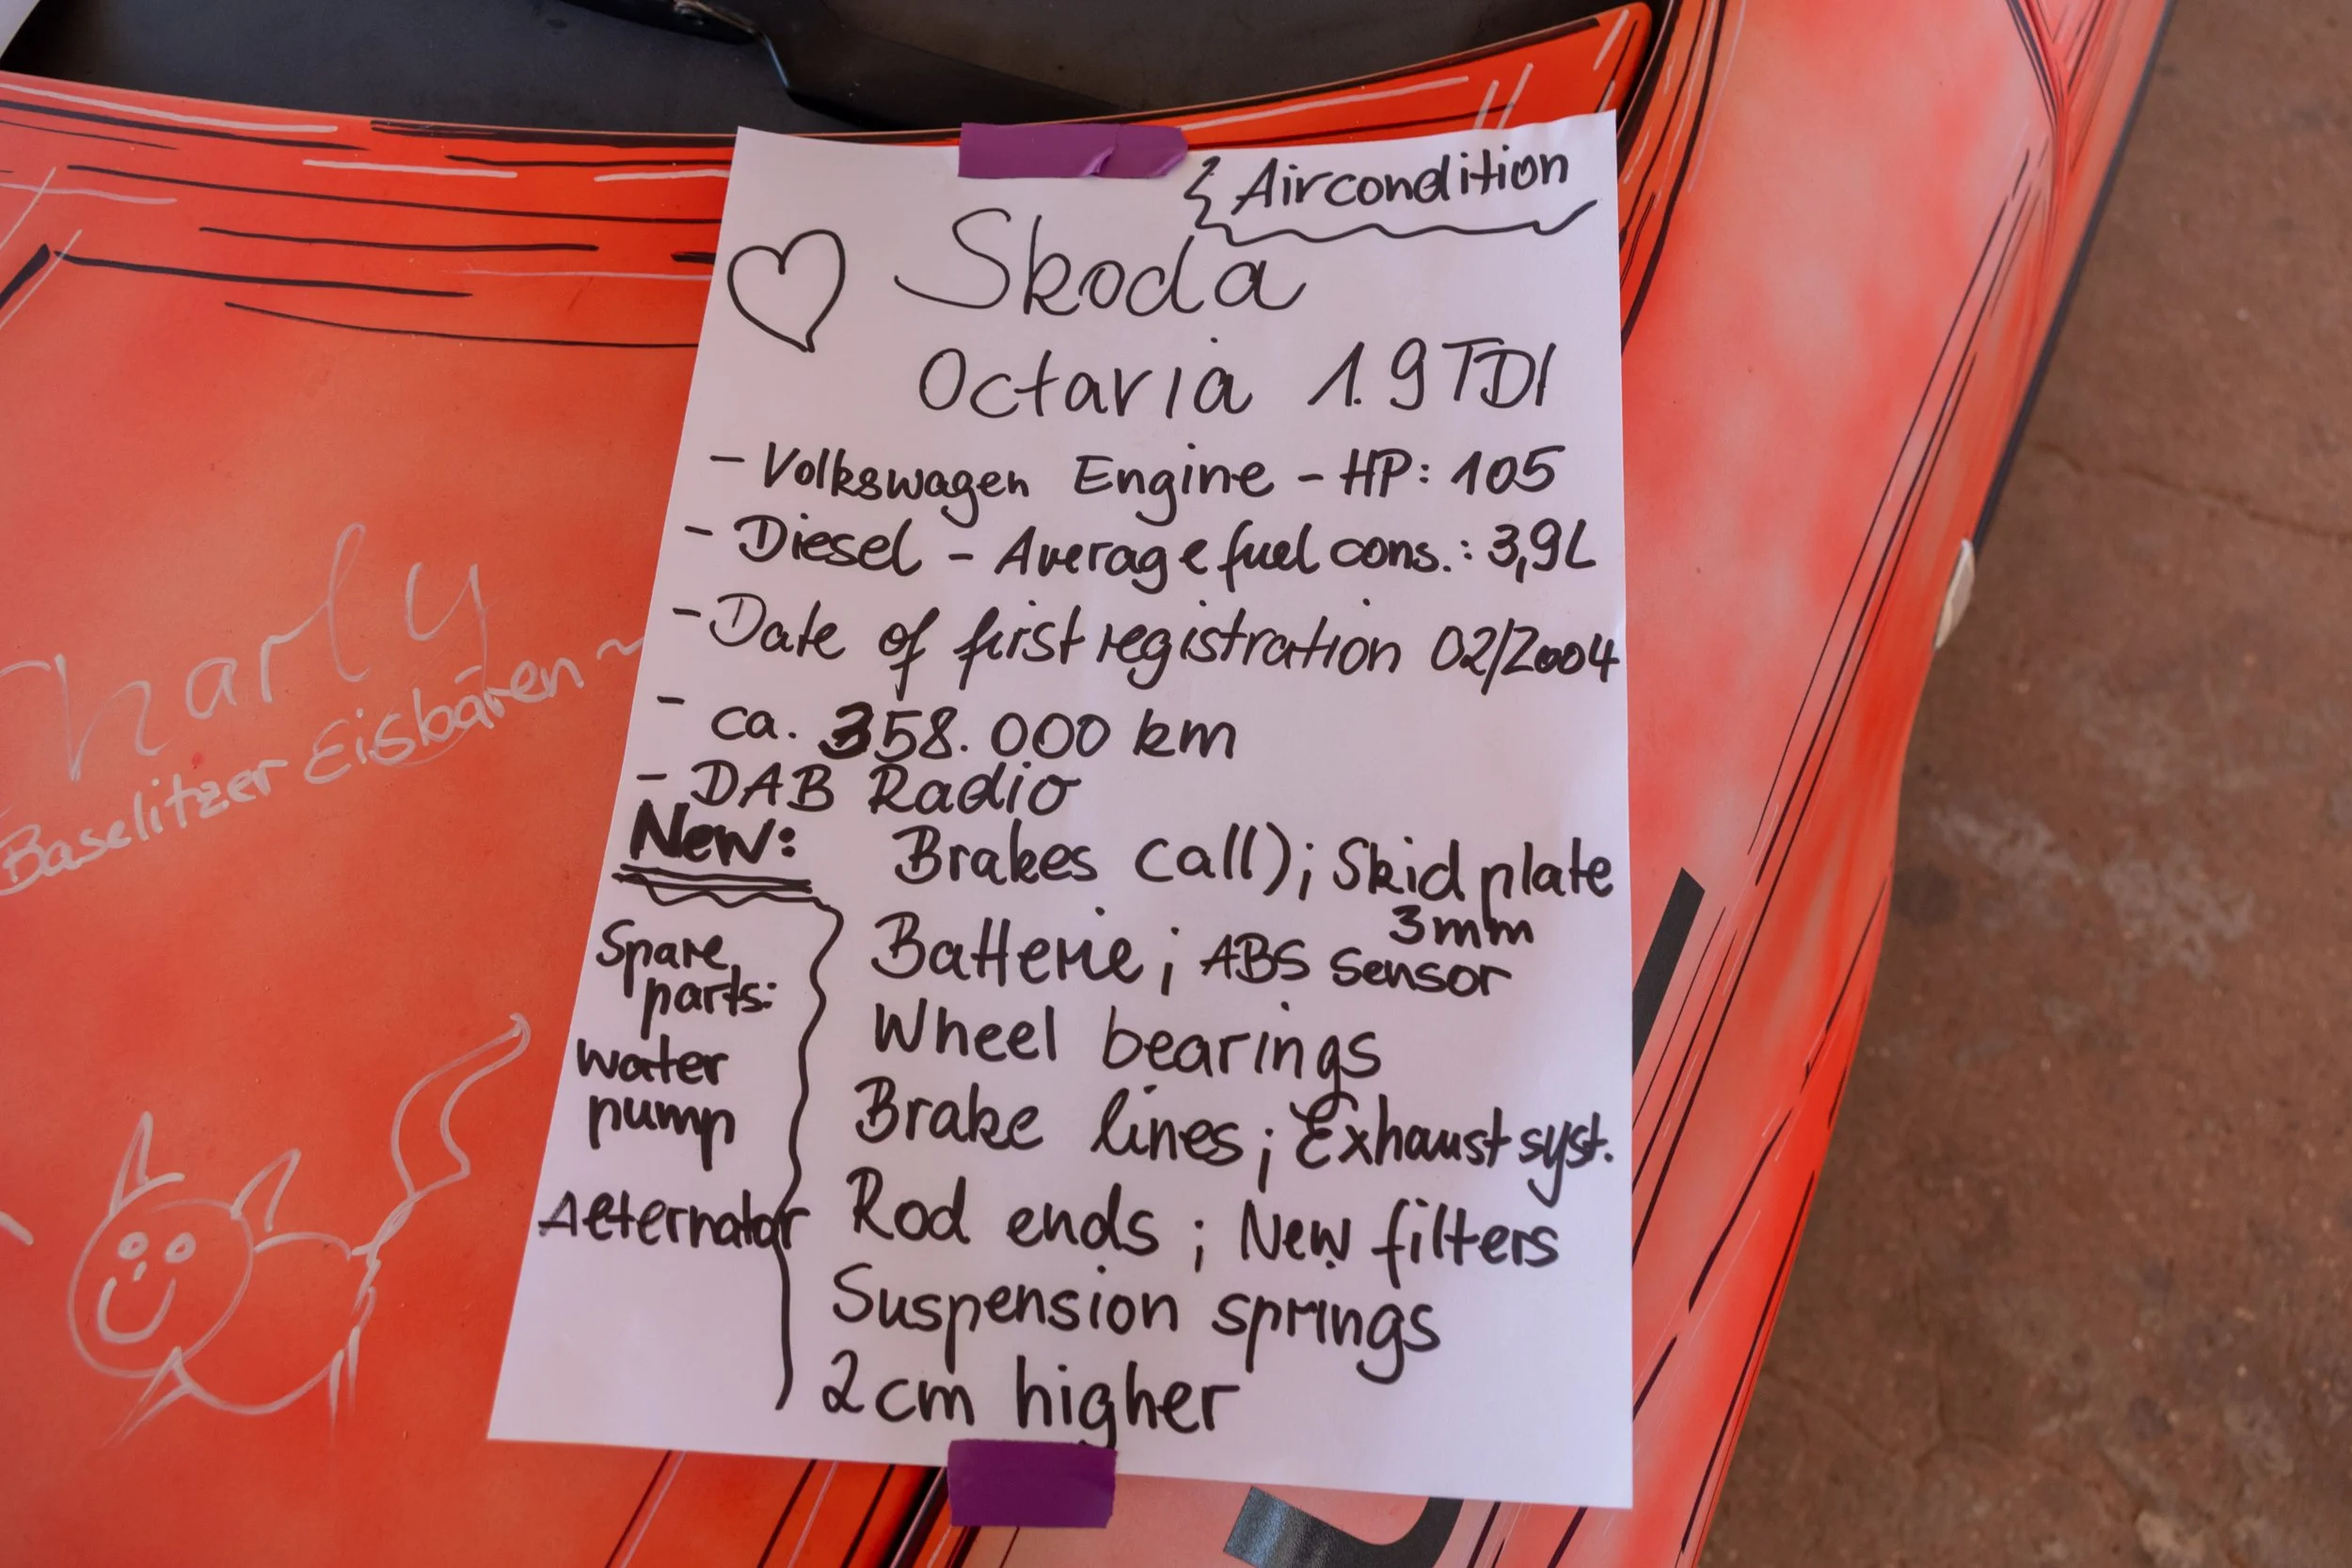 Aircondition
Skoda
Octavia 1.9 TDI
- Volkswagen Engine - HP: 105
- Diesel - Average fuel cons.: 3,9L
- Date of first registration 02/2004
- ca. 358.000 km
- DAB Radio
New: Brakes (all); Skid plate
3mm
Batterie; ABS Sensor
Wheel bearings
Brake lines; Exhaust syst.
Rod ends; New filters
Suspension springs
2cm higher
Spare
parts:
water
pump
Alternator
Charly
Baselitzer Eisbären ~